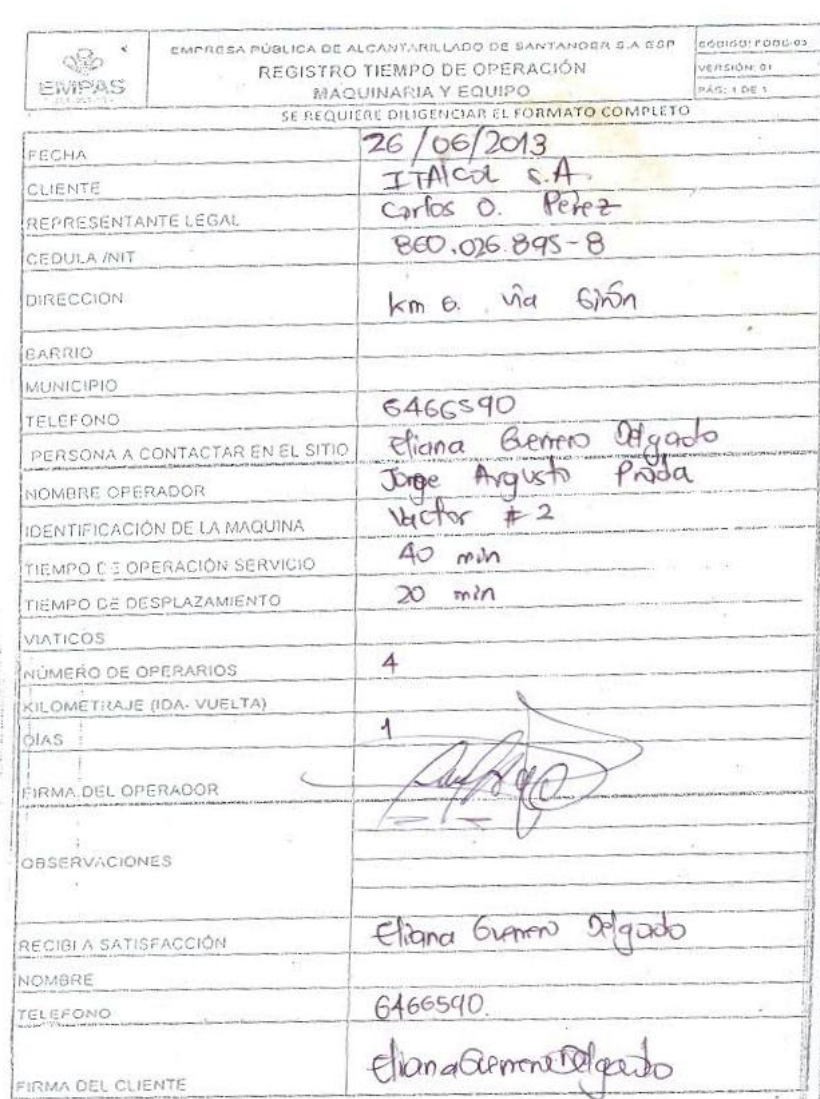 EMPAS
EMPRESA PÚBLICA DE ALCANTARILLADO DE SANTANDER S.A ESP
REGISTRO TIEMPO DE OPERACIÓN
MAQUINARIA Y EQUIPO
CÓDIGO: FODG-03
VERSIÓN: 01
PÁG: 1 DE 1
SE REQUIERE DILIGENCIAR EL FORMATO COMPLETO
FECHA 26/06/2013
CLIENTE ITAlCOL S.A.
REPRESENTANTE LEGAL Carlos O. Perez
CEDULA /NIT 860.026.895-8
DIRECCION km 6. vía Girón
BARRIO
MUNICIPIO
TELEFONO 6466590
PERSONA A CONTACTAR EN EL SITIO Eliana Guerrero Delgado
NOMBRE OPERADOR Jorge Argusto Prada
IDENTIFICACIÓN DE LA MAQUINA Vactor # 2
TIEMPO DE OPERACIÓN SERVICIO 40 min
TIEMPO DE DESPLAZAMIENTO 20 min
VIATICOS
NÚMERO DE OPERARIOS 4
KILOMETRAJE (IDA- VUELTA)
DÍAS 1
FIRMA DEL OPERADOR
OBSERVACIONES
RECIBI A SATISFACCIÓN Eliana Guerrero Delgado
NOMBRE
TELEFONO 6466590.
FIRMA DEL CLIENTE Eliana Guerrero Delgado